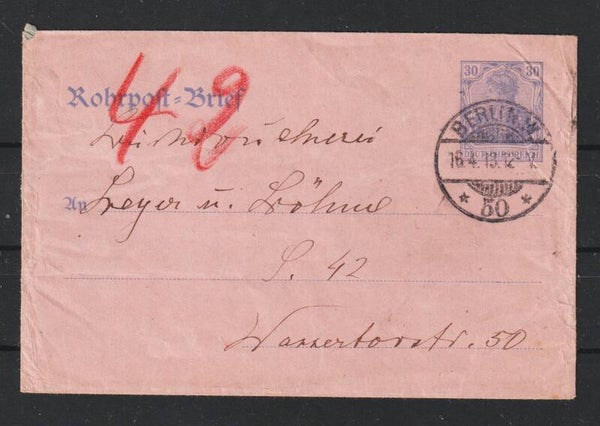 30 30
DEUTSCHES REICH
42
Rohrpost=Brief
BERLIN.W.
16.4.13.12-1
* 50 *
An
u. Böhme
S. 42
Wassertorstr. 50